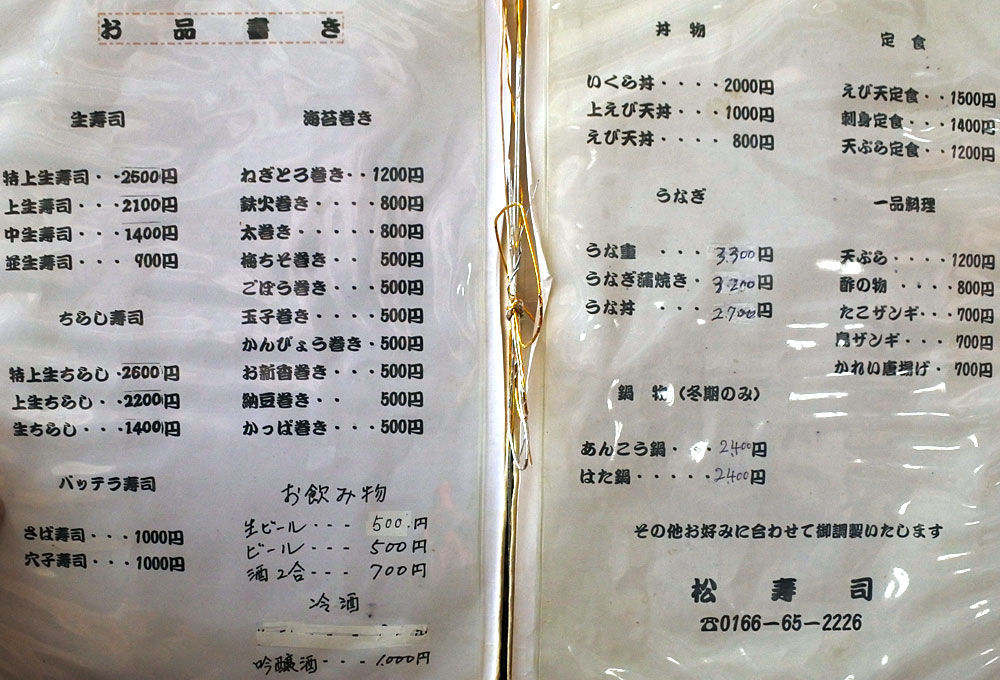 お品書き
生寿司
特上生寿司・・2500円
上生寿司・・・2100円
中生寿司・・・1400円
並生寿司・・・900円
ちらし寿司
特上生ちらし・2600円
上生ちらし・・2200円
生ちらし・・・1400円
バッテラ寿司
さば寿司・・・1000円
穴子寿司・・・1000円
海苔巻き
ねぎとろ巻き・・1200円
鉄火巻き・・・・800円
太巻き・・・・・800円
梅ちそ巻き・・500円
ごぼう巻き・・・500円
玉子巻き・・・・500円
かんぴょう巻き・500円
お新香巻き・・・500円
納豆巻き・・500円
かっぱ巻き・・・500円
お飲み物
生ビール・・・500円
ビール・・・500円
酒2合・・・700円
冷酒
吟醸酒・・・1,000円
丼物
いくら丼・・・・2000円
上えび天丼・・・1000円
えび天丼・・・・800円
うなぎ
うな重・・・3,300円
うなぎ蒲焼き・3,200円
うな丼・・・2,700円
鍋物（冬期のみ）
あんこう鍋・・・2,400円
はた鍋・・・・・2,400円
定食
えび天定食・・1500円
刺身定食・・・1400円
天ぷら定食・・1200円
一品料理
天ぷら・・・・1200円
酢の物・・・・800円
たこザンギ・・・700円
鳥ザンギ・・・700円
かれい唐揚げ・700円
その他お好みに合わせて御調製いたします
松寿司
☎0166-65-2226